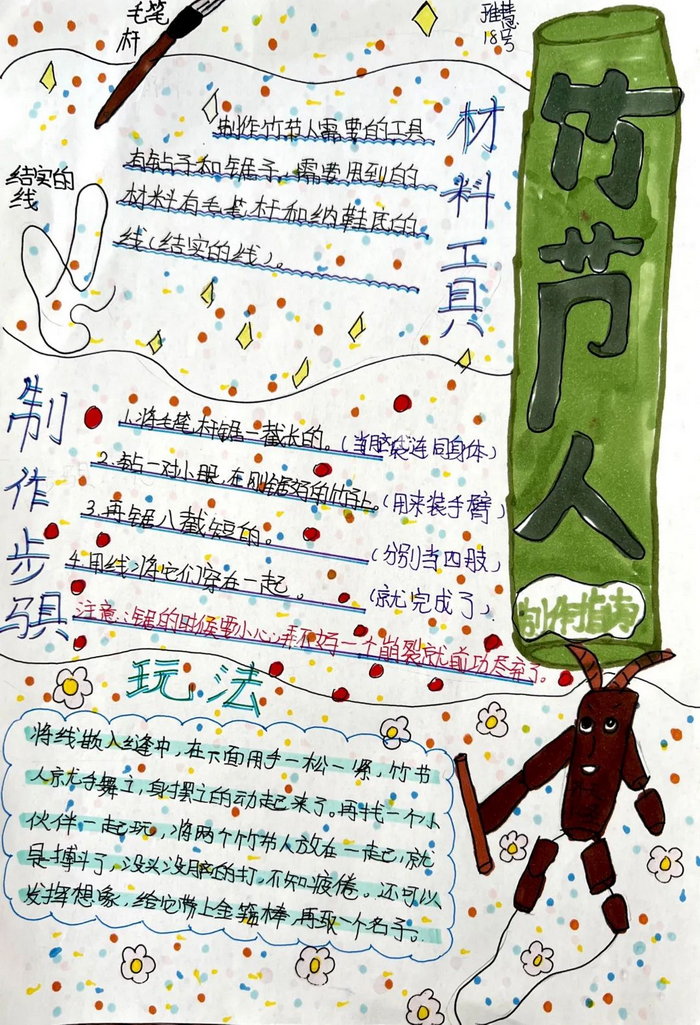 毛笔
杆
雅慧
18号
竹节人
制作指南
材料工具
制作竹节人需要的工具
有钻子和锯子，需要用到的
材料有毛笔杆和纳鞋底的
线(结实的线)。
结实的
线
制作步骐
1.将毛笔杆锯一截长的。(当脑袋连同身体)
2.钻一对小眼,在刚锯好的竹节上。(用来装手臂)
3.再锯八截短的。(分别当四肢)
4.用线将它们穿在一起。(就完成了)
注意:锯的时候要小心,弄不好一个崩裂就前功尽弃了。
玩法
将线嵌入缝中,在下面用手一松一紧,竹节
人就手舞之,身摆之的动起来了。再找一个小
伙伴一起玩,将两个竹节人放在一起,就
是搏斗了,没头没脑的打,不知疲倦。还可以
发挥想象,给它带上金箍棒,再取一个名字。